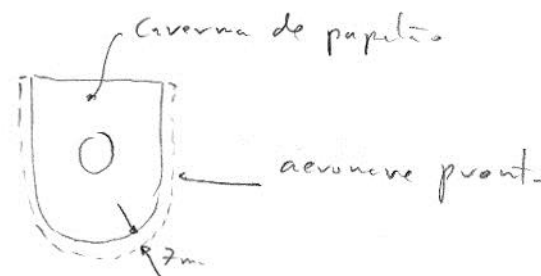 Caverna de papelão
aeronave pront.
7m.